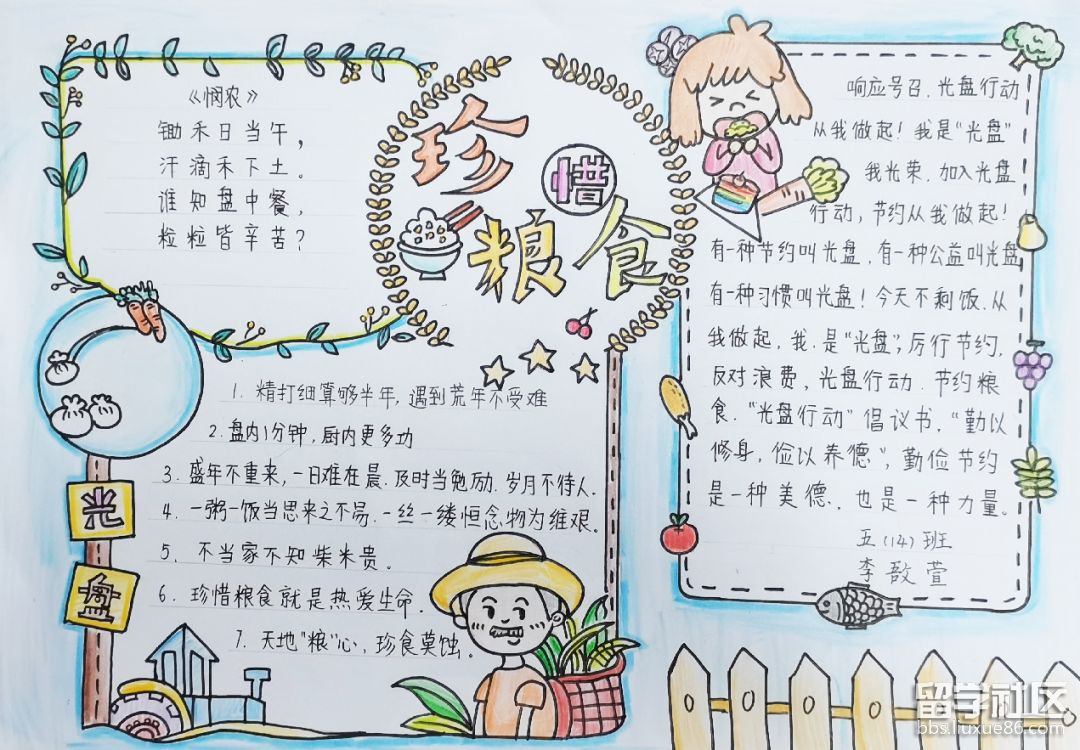 《悯农》
锄禾日当午，
汗滴禾下土。
谁知盘中餐，
粒粒皆辛苦？
珍惜
粮食
1. 精打细算够半年，遇到荒年不受难
2. 盘内1分钟，厨内更多功
3. 盛年不重来，一日难在晨．及时当勉励．岁月不待人．
4. 一粥一饭当思来之不易．一丝一缕恒念物为维艰。
5. 不当家不知柴米贵。
6. 珍惜粮食就是热爱生命．
7. 天地"粮"心，珍食莫蚀．
光
盘
响应号召．光盘行动
从我做起！我是"光盘"
我光荣．加入光盘
行动，节约从我做起！
有一种节约叫光盘，有一种公益叫光盘
有一种习惯叫光盘！今天不剩饭．从
我做起，我．是"光盘"，厉行节约，
反对浪费，光盘行动．节约粮
食．"光盘行动"倡议书，"勤以
修身，俭以养德"，勤俭节约
是一种美德．也是一种力量。
五（14）班
李敔萱
留学社区
bbs.liuxue86.com